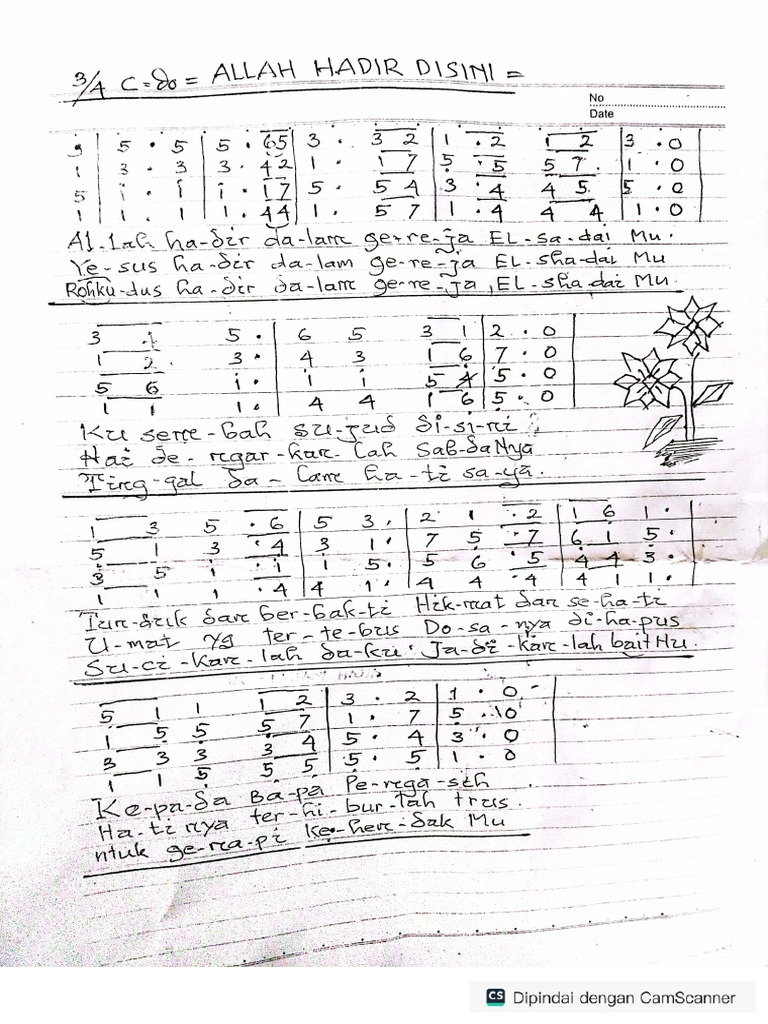 3/4 C=do = ALLAH HADIR DISINI =
No
Date
3 | 5 . 5 | 5 . 65 | 3 . 32 | 1 . 2 1 2 | 3 . 0
1 | 3 . 3 | 3 . 42 | 1 . 17 | 5 . 5 5 7 | 1 . 0
5 | i . i | i . 17 | 5 . 54 | 3 . 4 4 5 | 5 . 0
1 | 1 . 1 | 1 . 44 | 1 . 57 | 1 . 4 4 4 | 1 . 0
Al-lah ha-dir da-lam ge-re-ja EL-sa-dai Mu.
Ye-sus ha-dir da-lam ge-re-ja EL-sha-dai Mu
Rohku-dus ha-dir da-lam ge-re-ja, EL-sha-dai Mu.
3 1 5 . | 6 5 3 1 | 2 . 0
1 2 . 3 . | 4 3 1 6 | 7 . 0
5 6 i . | i i 5 4 | 5 . 0
1 1 1 . | 4 4 1 6 | 5 . 0
Ku sem-bah su-jud di-si-ni
Hai de-ngar-kan-lah Sab-daNya
Ting-gal da-lam ha-ti sa-ya.
1 3 5 . 6 | 5 3 . | 2 1 . 2 | 1 6 1 .
5 1 3 . 4 | 3 1 . | 7 5 . 7 | 6 1 5 .
3 5 i . i | 1 5 . | 5 6 . 5 | 4 4 3 .
1 1 1 . 4 | 4 1 . | 4 4 . 4 | 4 1 1 .
Tun-duk dan ber-bak-ti Hik-mat dan se-ha-ti
U-mat yg ter-te-bus Do-sa-nya di-ha-pus
Su-ci-kan-lah da-ku. Ja-di-kan-lah bait Mu.
5 1 1 1 2 | 3 . 2 | 1 . 0
1 5 5 5 7 | 1 . 7 | 5 . 0
3 3 3 3 4 | 5 . 4 | 3 . 0
1 1 5 5 5 | 5 . 5 | 1 . 0
Ke-pa-da Ba-pa Pe-nga-sih
Ha-ti nya ter-hi-bur-lah trus.
ntuk ge-na-pi ke-hen-dak Mu
CS Dipindai dengan CamScanner